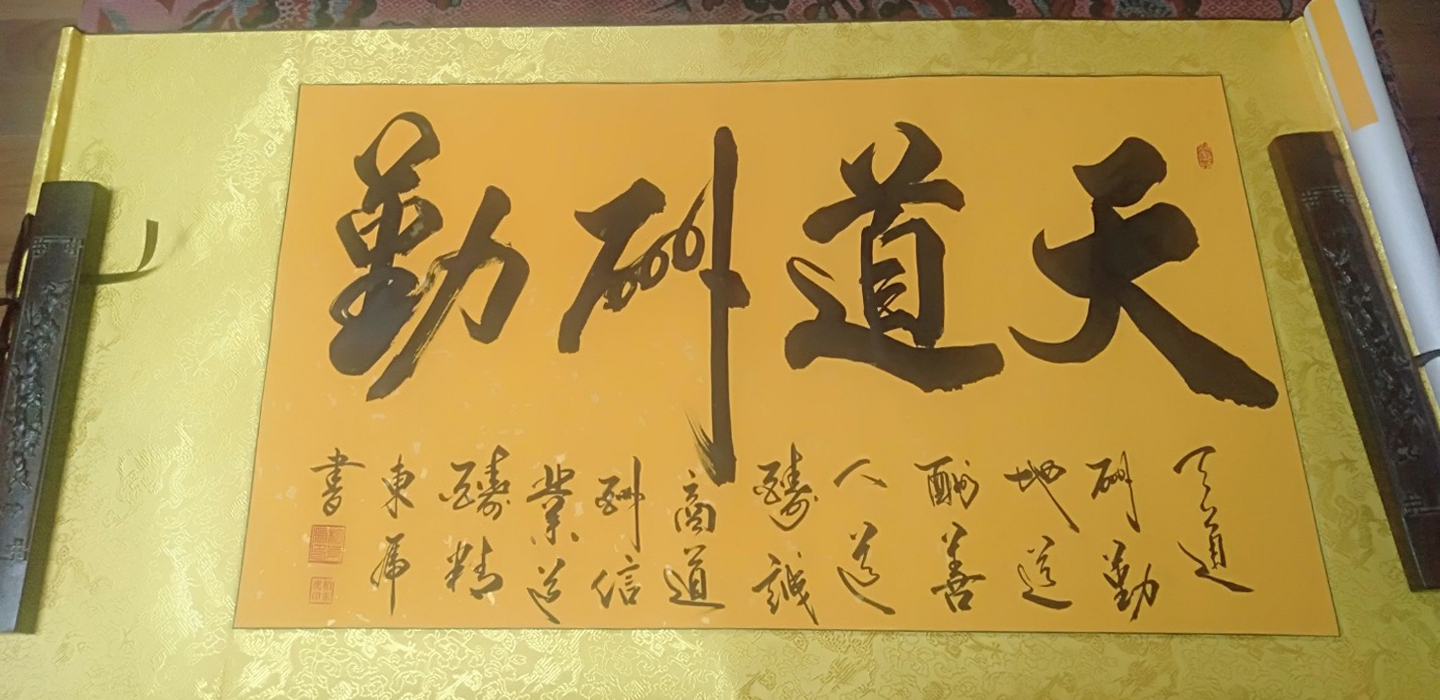 天道酬勤
天道
酬勤
地道
酬善
人道
酬誠
商道
酬信
業道
酬精
東虎
書